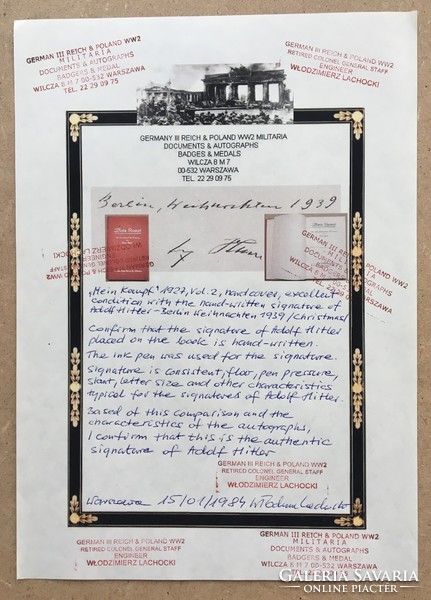 GERMAN III REICH & POLAND WW2
MILITARIA
DOCUMENTS & AUTOGRAPHS
BADGERS & MEDALS
WILCZA 8 M 7 00-532 WARSZAWA
TEL. 22 29 09 75
GERMAN III REICH & POLAND WW2
RETIRED COLONEL GENERAL STAFF
ENGINEER
WŁODZIMIERZ LACHOCKI
GERMANY III REICH & POLAND WW2 MILITARIA
DOCUMENTS & AUTOGRAPHS
BADGES & MEDALS
WILCZA 8 M 7
00-532 WARSZAWA
TEL. 22 29 09 75
Berlin, Weihnachten 1939
Mein Kampf
"Mein Kampf" 1927, Vol. 2, hardcover, excellent
condition with the hand-written signature of
Adolf Hitler - Berlin Weihnachten 1939 /Christmas/
Confirm that the signature of Adolf Hitler
placed on the book is hand-written.
The ink pen was used for the signature.
Signature is consistent, flow, pen pressure,
slant, letter size and other characteristics
typical for the signatures of Adolf Hitler.
Based of this comparison and the
characteristics of the autographs,
I confirm that this is the authentic
signature of Adolf Hitler
GERMAN III REICH & POLAND WW2
RETIRED COLONEL GENERAL STAFF
ENGINEER
WŁODZIMIERZ LACHOCKI
Warszawa 15/01/1984
GERMAN III REICH & POLAND WW2
RETIRED COLONEL GENERAL STAFF
ENGINEER
WŁODZIMIERZ LACHOCKI
GERMAN III REICH & POLAND WW2
MILITARIA
DOCUMENTS & AUTOGRAPHS
BADGERS & MEDALS
WILCZA 8 M 7 00-532 WARSZAWA
TEL. 22 29 09 75
GALERIA SAVARIA
ONLINE PIACTÉR